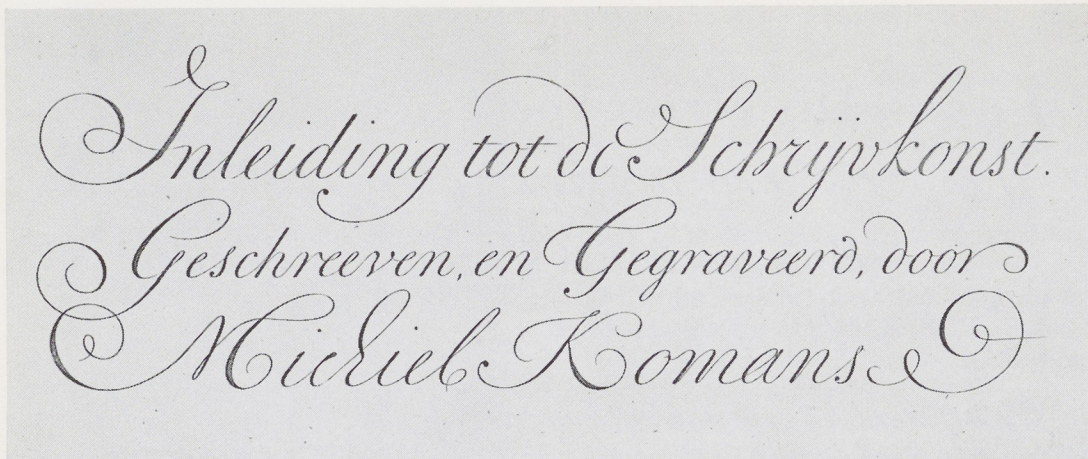 Inleiding tot de Schrijvkonst.
Geschreeven, en Gegraveerd, door
Michiel Komans